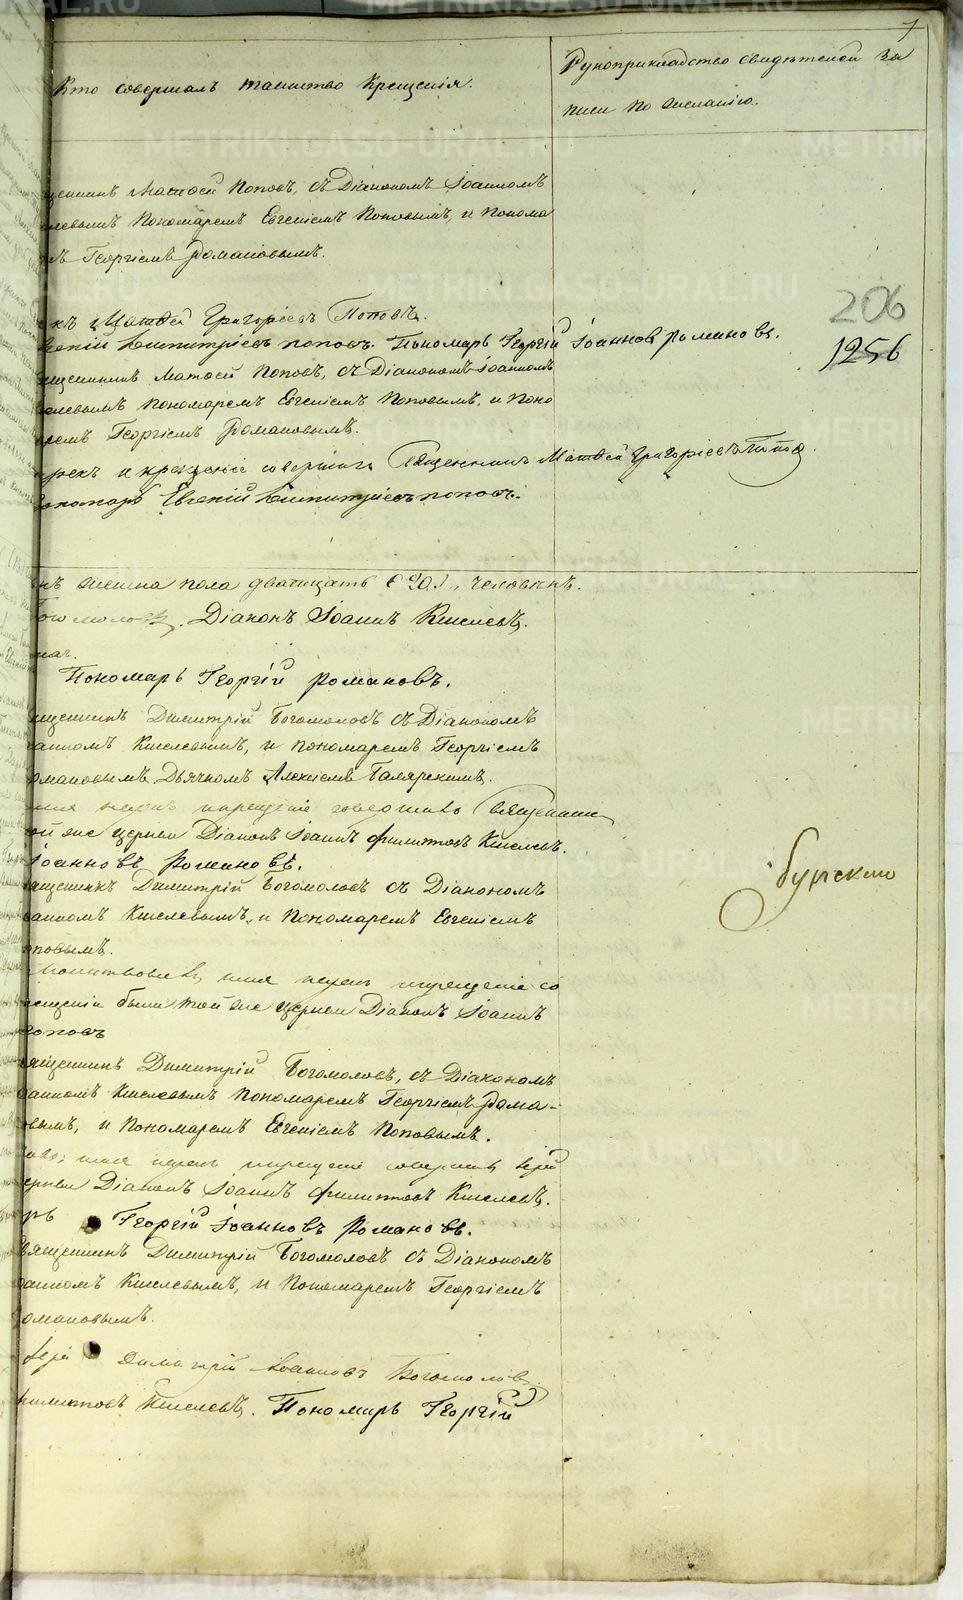 7
Кто совершалъ таинство Крещенія.
Рукоприкладство свидѣтелей за
писи по желанію.
щенникъ Матѳей Поповъ, съ Діакономъ Іоанномъ
левымъ Пономаремъ Евгеніемъ Поповымъ, и Понома
Георгіемъ Романовымъ.
206
Матѳей Григорьевъ Поповъ.
гній Димитріевъ Поповъ. Пономарь Георгій Іоанновъ Романовъ.
1256
щенникъ Матѳей Поповъ, съ Діакономъ Іоанномъ
елевымъ Пономаремъ Евгеніемъ Поповымъ, и Поно
ремъ Георгіемъ Романовымъ.
и крещеніе совершилъ Священникъ Матѳей Григорьевъ Поповъ.
ономарь Евгеній Димитріевъ Поповъ.
женска пола двадцать (20), человѣкъ.
Богомоловъ. Діаконъ Іоаннъ Киселевъ.
Пономарь Георгій Романовъ.
щенникъ Димитрій Богомоловъ съ Діакономъ
анномъ Киселевымъ, и Пономаремъ Георгіемъ
омановымъ Дьячкомъ Алексіемъ
крещеніе совершилъ Священник
той же церкви Діаконъ Іоаннъ Филиповъ Киселевъ.
Іоанновъ Романовъ.
ященникъ Димитрій Богомоловъ съ Діакономъ
анномъ Киселевымъ, и Пономаремъ Евгеніемъ
повымъ.
бурскаго
Молитвова имя нарек и крещеніе со
рещеніи были той же церкви Діаконъ Іоаннъ
Поповъ
вященникъ Димитрій Богомоловъ, съ Діакономъ
анномъ Киселевымъ Пономаремъ Георгіемъ Рома-
вымъ, и Пономаремъ Евгеніемъ Поповымъ.
имя нарек и крещеніе совершилъ Іерей
церкви Діаконъ Іоаннъ Филиповъ Киселевъ.
рь Георгій Іоанновъ Романовъ.
Священникъ Димитрій Богомоловъ съ Діакономъ
анномъ Киселевымъ, и Пономаремъ Георгіемъ
омановымъ.
Іерей Димитрій Іоанновъ Богомоловъ
Филиповъ Киселевъ. Пономарь Георгій
METRIKI.GASO-URAL.RU